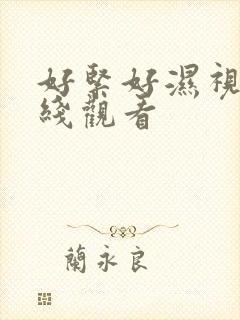 好緊好濕視
綫觀看
蘭永良